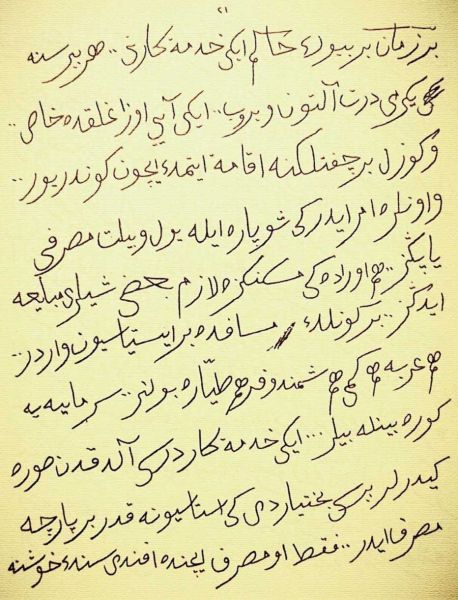 ٢١
بر زمان بر بیوك حاكم ایكی خدمتكارینی.. هر بریسنه
یگرمی درت آلتون ویروب.. ایكی آیی اوزاغلقده خاص..
و گوزل بر چفتلكنه اقامة ایتمك ایچون كوندریور..
و اونلره امر ایدر كی شو پاره ایله یول و بیلت مصرفی
یاپڭز.. هم اوراده كی مسكنڭزه لازم بعضی شیلری مبایعه
ایدڭز.. بر كونلك مسافه ده بر ایستاسیون واردر..
هم عربه هم گمی هم شمندوفر هم طیّاره بولنر.. سرمایه یه
كوره بینله بیلر... ایكی خدمتكار درسی آلدقدن صوره
كیدرلر بریسی بختیاردی كی استاسیونه قدر بر پارچه
مصرف ایدر.. فقط او مصرف ایچنده افندیسنك خوشنه